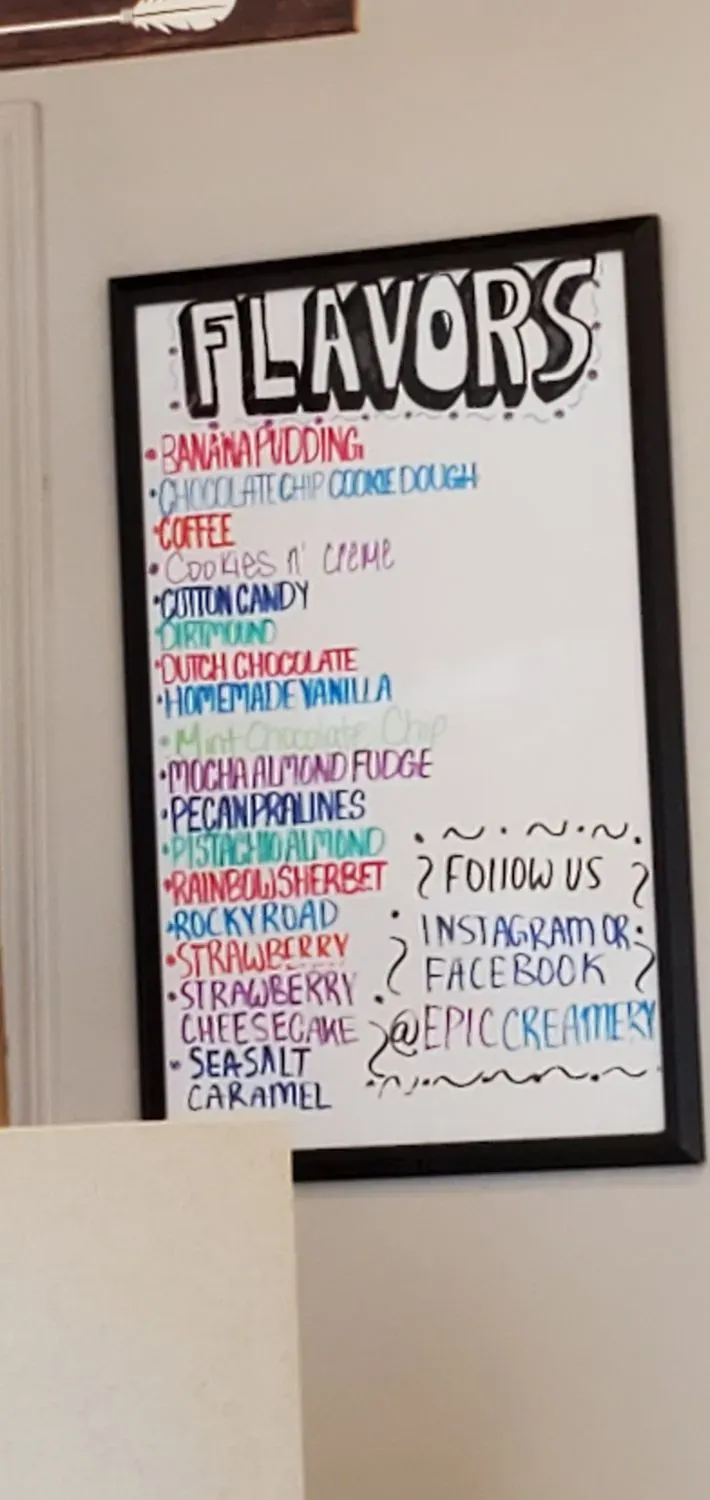 FLAVORS
•BANANA PUDDING
•CHOCOLATE CHIP COOKIE DOUGH
•COFFEE
•Cookies n' creme
•COTTON CANDY
•DIRTMOUND
•DUTCH CHOCOLATE
•HOMEMADE VANILLA
•Mint Chocolate Chip
•MOCHA ALMOND FUDGE
•PECAN PRALINES
•PISTACHIO ALMOND
•RAINBOW SHERBET
•ROCKY ROAD
•STRAWBERRY
•STRAWBERRY
CHEESECAKE
•SEASALT
CARAMEL
FOllOW US
INSTAGRAM OR
FACEBOOK
@EPICCREAMERY